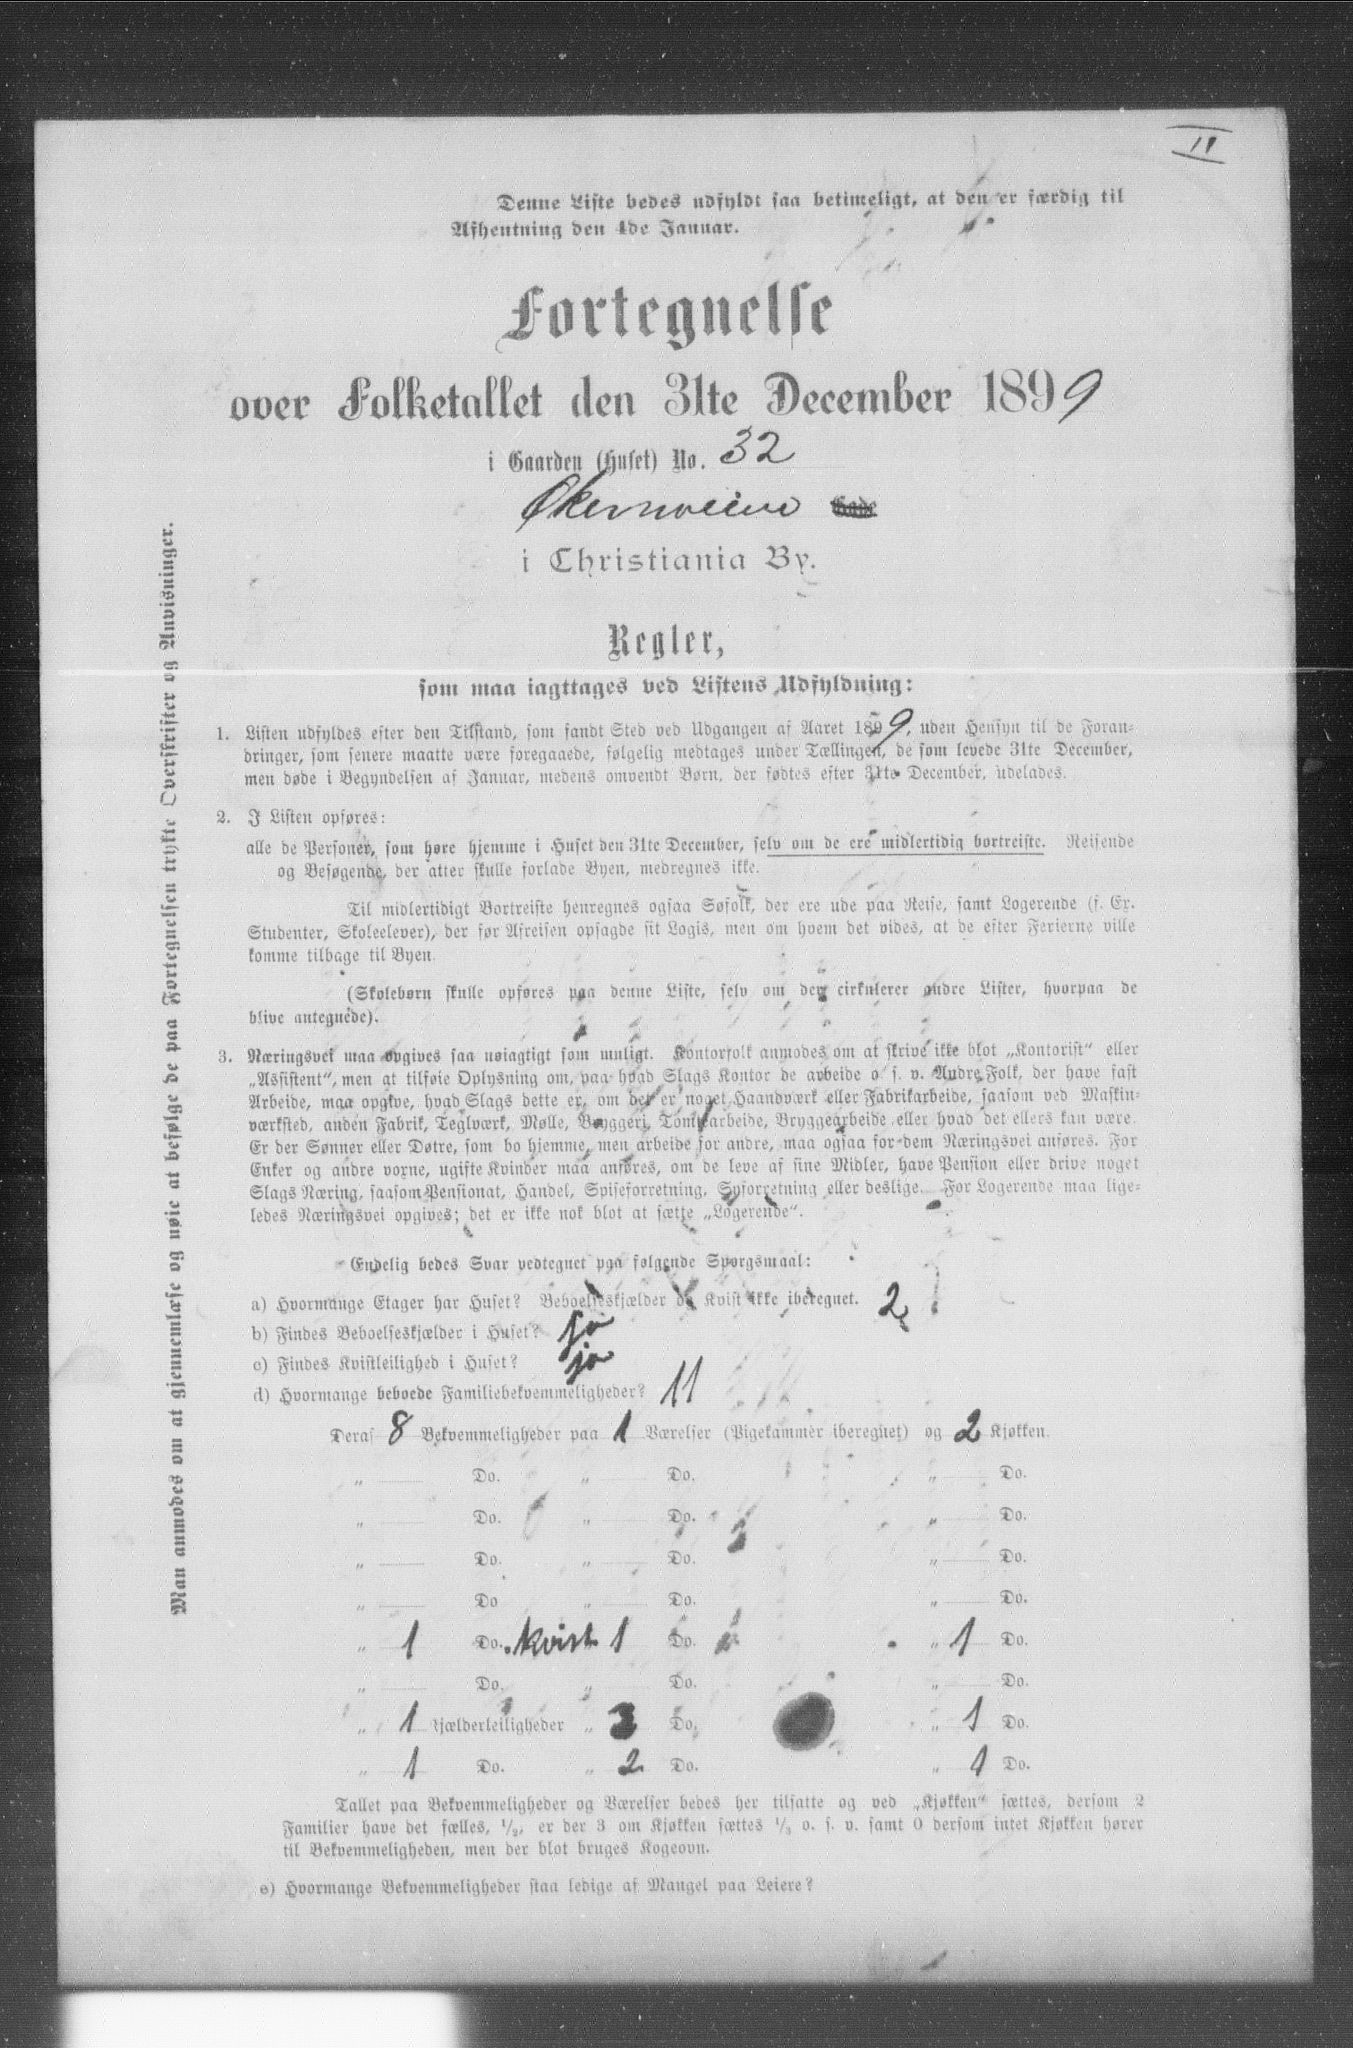 II
Denne Liste bedes udfyldt saa betimeligt, at den er færdig til
Afhentning den 4de Januar.
Fortegnelse
over Folketallet den 31te December 1899
i Gaarden (Huset) No. 32
Økernveien Gade
i Christiania By.
Regler,
som maa iagttages ved Listens Udfyldning:
1. Listen udfyldes efter den Tilstand, som fandt Sted ved Udgangen af Aaret 1899, uden Hensyn til de Foran-
dringer, som senere maatte være foregaaede, følgelig medtages under Tællingen, de som levede 31te December,
men døde i Begyndelsen af Januar, medens omvendt Børn, der fødtes efter 31te December, udelades.
2. I Listen opføres:
alle de Personer, som høre hjemme i Huset den 31te December, selv om de ere midlertidig bortreiste. Reisende
og Besøgende, der atter skulle forlade Byen, medregnes ikke.
Til midlertidigt Bortreiste henregnes ogsaa Søfolk, der ere ude paa Reise, samt Logerende (f. Ex.
Studenter, Skoleelever), der før Afreisen opsagde sit Logis, men om hvem det vides, at de efter Ferierne ville
komme tilbage til Byen.
(Skolebørn skulle opføres paa denne Liste, selv om der cirkulerer andre Lister, hvorpaa de
blive antegnede).
3. Næringsvei maa opgives saa nøiagtigt som muligt. Kontorfolk anmodes om at skrive ikke blot „Kontorist“ eller
„Assistent“, men at tilføie Oplysning om, paa hvad Slags Kontor de arbeide o. s. v. Andre Folk, der have fast
Arbeide, maa opgive, hvad Slags dette er, om det er noget Haandværk eller Fabrikarbeide, saasom ved Maskin-
værksted, anden Fabrik, Teglværk, Mølle, Bryggeri, Tomtearbeide, Bryggearbeide eller hvad det ellers kan være.
Er der Sønner eller Døtre, som bo hjemme, men arbeide for andre, maa ogsaa for dem Næringsvei anføres. For
Enker og andre voxne, ugifte Kvinder maa anføres, om de leve af sine Midler, have Pension eller drive noget
Slags Næring, saasom Pensionat, Handel, Spiseforretning, Syforretning eller deslige. For Logerende maa lige-
ledes Næringsvei opgives; det er ikke nok blot at sætte „Logerende“.
Endelig bedes Svar vedtegnet paa følgende Spørgsmaal:
a) Hvormange Etager har Huset? Beboelseskjælder og Kvist ikke iberegnet. 2
b) Findes Beboelseskjælder i Huset? ja
c) Findes Kvistleilighed i Huset? ja
d) Hvormange beboede Familiebekvemmeligheder? 11
Deraf 8 Bekvemmeligheder paa 1 Værelser (Pigekammer iberegnet) og 2 Kjøkken.
„ Do. „ Do. „ Do.
„ Do. „ Do. „ Do.
„ Do. „ Do. „ Do.
„ Do „ Do. „ Do.
„ 1 Do. kvist 1 Do. „ 1 Do.
„ Do. „ Do. „ Do.
„ 1 Kjælderleiligheder „ 3 Do. „ 1 Do.
„ 1 Do. „ 2 Do. „ 1 Do.
Tallet paa Bekvemmeligheder og Værelser bedes her tilsatte og ved „Kjøkken“ sættes, dersom 2
Familier have det fælles, 1/2, er der 3 om Kjøkken sættes 1/3 o. s. v. samt 0 dersom intet Kjøkken hører
til Bekvemmeligheden, men der blot bruges Kogeovn.
e) Hvormange Bekvemmeligheder staa ledige af Mangel paa Leiere?
Man anmodes om at gjennemlæse og nøie at befølge de paa Fortegnelsen trykte Overskrifter og Anvisninger.